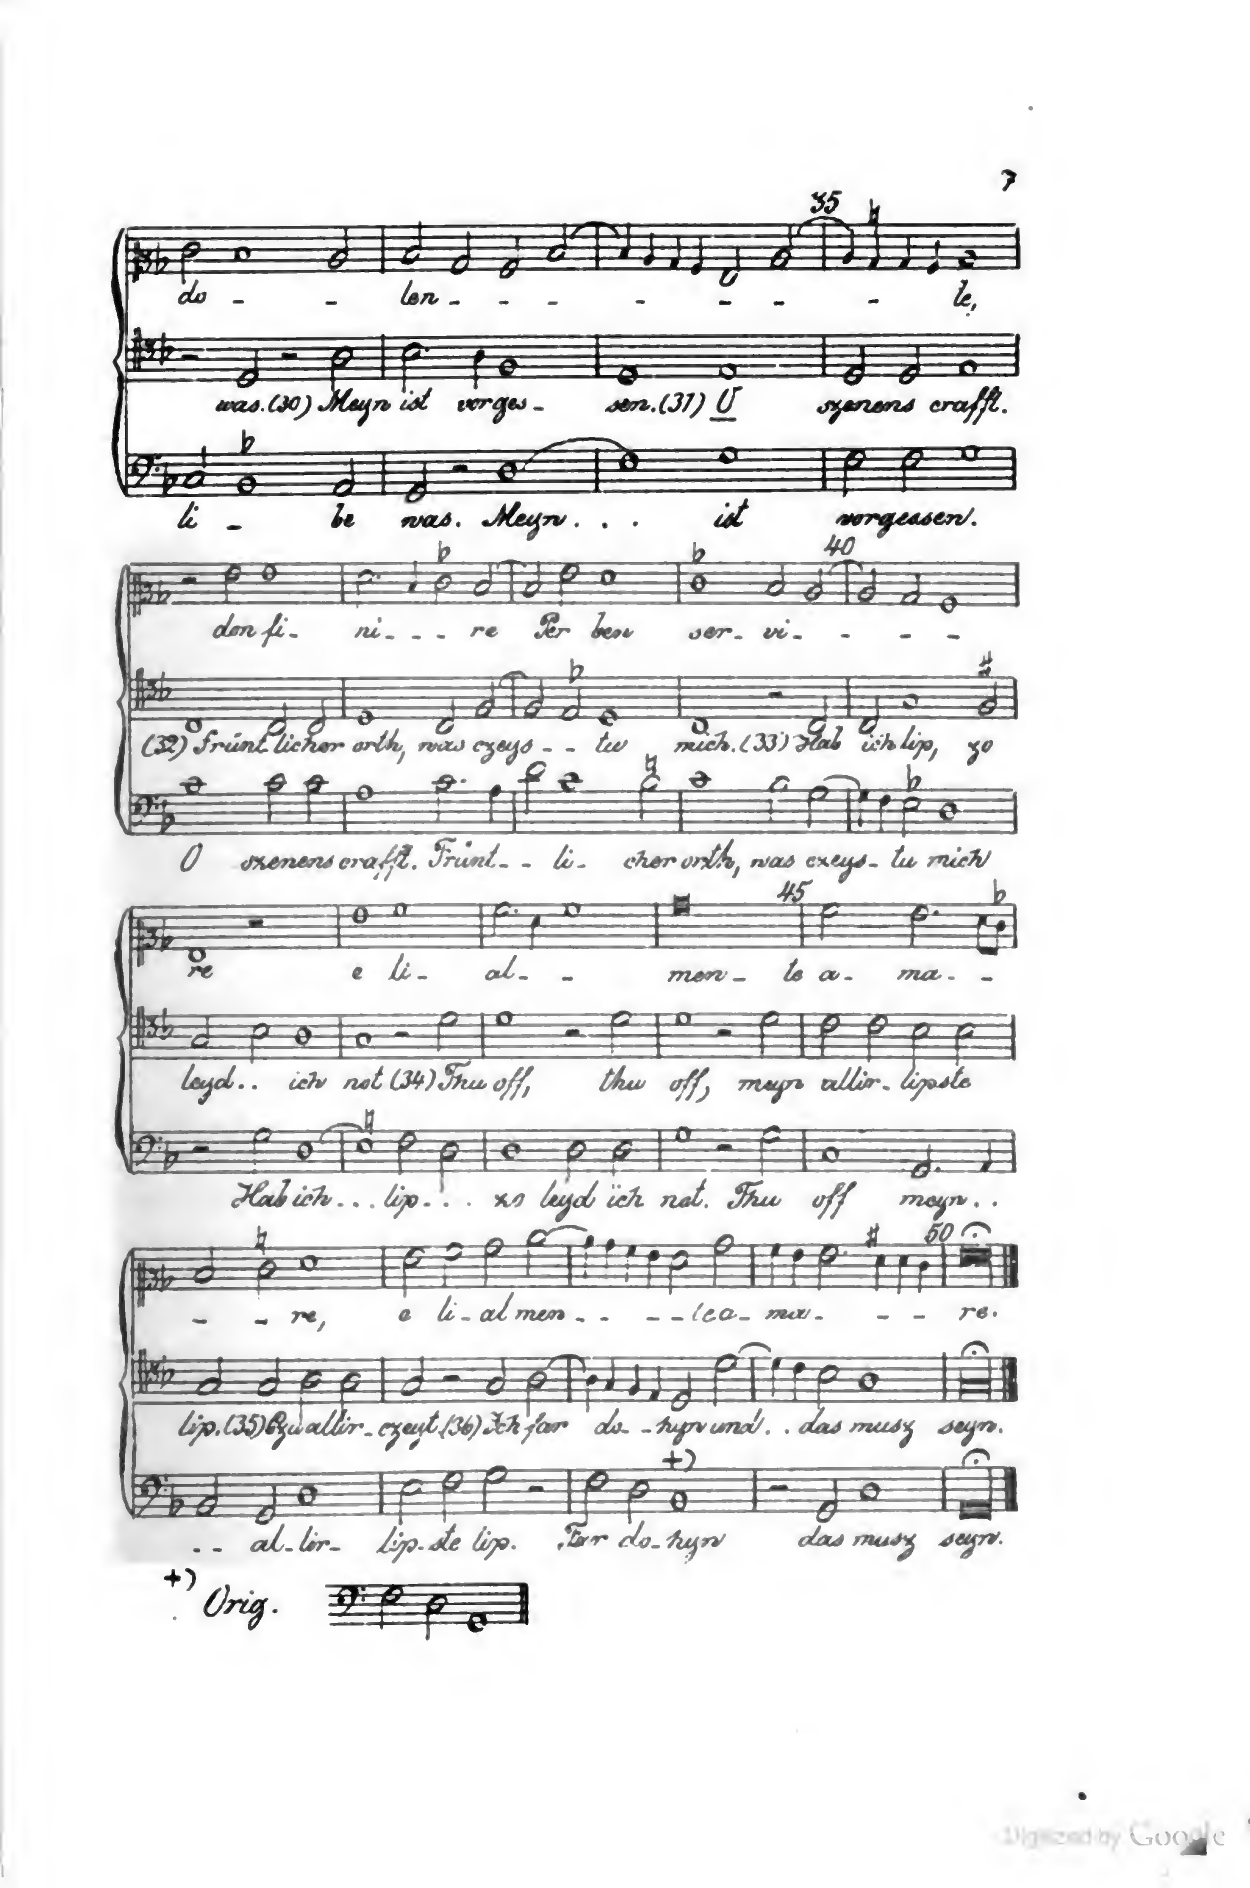 7
35
do - - len - - - - - - - te,
was. (30) Meyn ist vorges - sen. (31) O szenens crafft.
li - be was. Meyn . . . ist vorgessen.
40
don fi - ni - - - re Per ben ser - vi - - - -
(32) Früntlicher orth, was czeys - - tu mich. (33) Hab ich lip, zo
O szenens crafft. Frünt - - li - cher orth, was czeys - tu mich
45
re e li - al - - men - te a - ma - -
leyd . . ich not (34) Thu off, thu off, meyn allir - lipste
Hab ich . . . lip . . . zo leyd ich not. Thu off meyn . .
50
- - re, e li - al men - - - - te a - ma - - - re.
lip. (35) Czu allir - czeyt. (36) Ich far do - - hyn und . . das musz seyn.
+)
. . al - lir - lip - ste lip. Far do - hyn das musz seyn.
+) Orig.
Digitized by Google